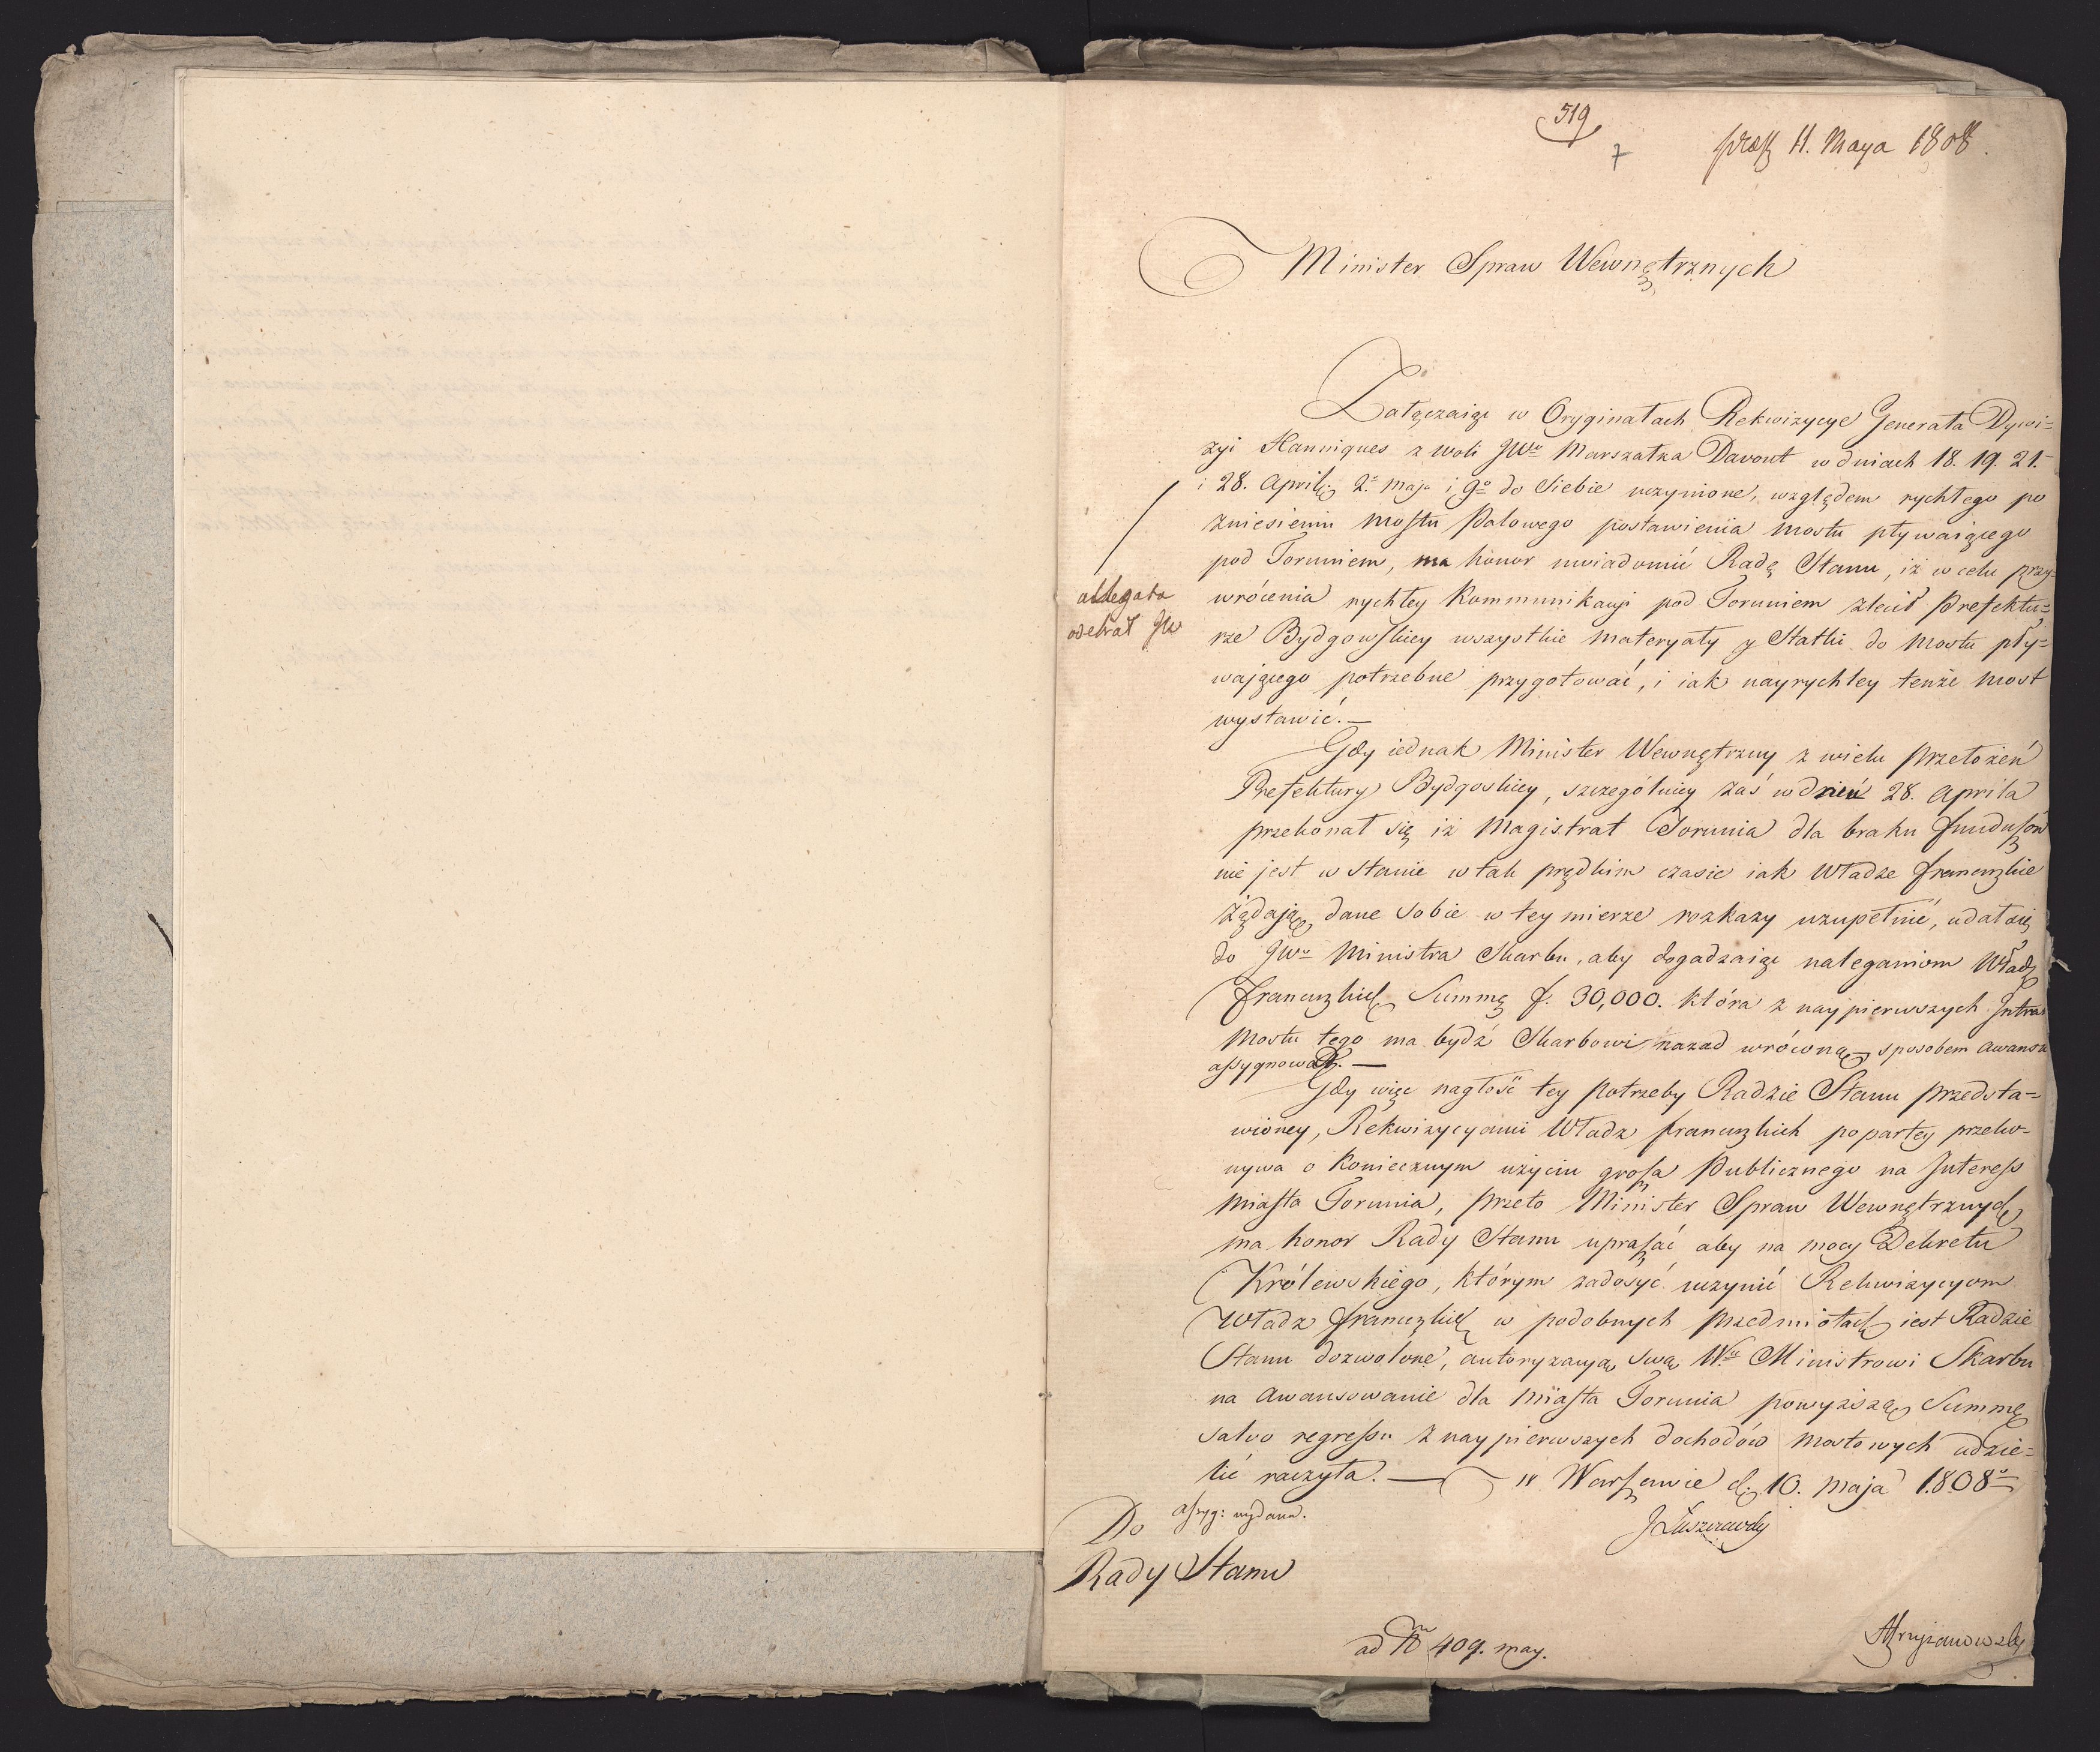 519
7
praes 11. Maya 1808.
Minister Spraw Wewnętrznych
Załączaiąc w Oryginałach Rekwizycye Generała Dywi=
zyi Hanniques z woli JWo Marszałka Davout w dniach 18. 19. 21.
i 28. Aprilis 2o maja i 9o do Siebie uczynione, względem rychłego po
zniesieniu Mostu Palowego postawienia mostu pływaiącego
pod Toruniem, ma honor uwiadomić Radę Stanu, iż w celu przy=
wrócenia rychłey Kommunikacyi pod Toruniem zlecił Prefektu=
rze Bydgowskiey wszystkie materyały y Statki do Mostu pły=
wającego potrzebne przygotować, i iak nayrychley tenże Most
wystawić. —
allegata
odebrał JW
Gdy iednak Minister Wewnętrzny z wielu Przełożeń
Prefektury Bydgoskiey, szczególniey zaś w dniu 28. Aprila
przekonał się iż Magistrat Torunia dla braku funduszów
nie jest w Stanie w tak prędkim czasie iak Władze francuzkie
żądają, dane sobie w tey mierze rozkazy uzupełnić, udał się
do JWo Ministra Skarbu, aby dogadzaiąc naleganiom Władz
francuzkich Summę f. 30,000. która z naypierwszych Intrat
Mostu tego ma bydź Skarbowi nazad wróconą, sposobem awansu
assygnował. —
Gdy więc nagłość tey Potrzeby Radzie Stanu Przedsta=
wioney, Rekwizycyami Władz francuzkich popartey przeko=
nywa o Koniecznym użyciu grosza Publicznego na Interess
Miasta Torunia, Przeto Minister Spraw Wewnętrznych
ma honor Rady Stanu upraszać aby na mocy Dekretu
Królewskiego, którym zadosyć uczynić Rekwizycyom
Władz francuzkich w podobnych Przedmiotach iest Radzie
Stanu dozwolone, autoryzacyą swą Wu Ministrowi Skarbu
na Awansowanie dla Miasta Torunia powyższą Summę
salvo regressu z naypierwszych dochodów Mostowych udzie=
lić raczyła. — w Warszawie d. 10. Maja 1808o
assyg: wydana.
JŁuszczewski
Do
Rady Stanu
ad No 409. may.